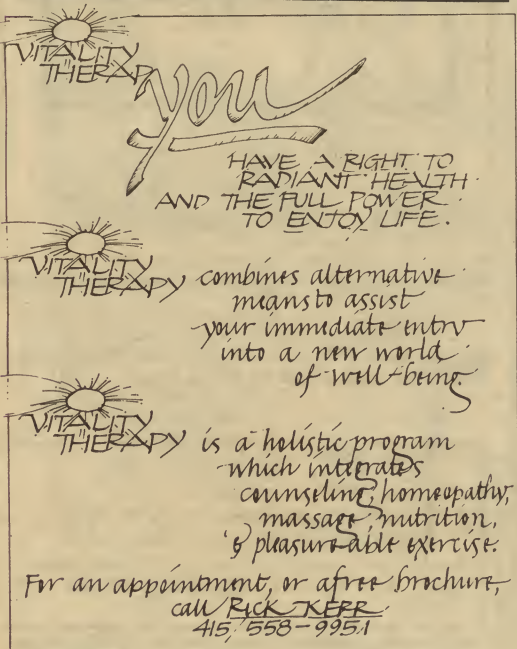 VITALITY
THERAPY
you
HAVE A RIGHT TO
RADIANT HEALTH
AND THE FULL POWER
TO ENJOY LIFE.
VITALITY
THERAPY combines alternative
means to assist
your immediate entry
into a new world
of well-being.
VITALITY
THERAPY is a holistic program
which integrates
counseling, homeopathy,
massage, nutrition,
& pleasure-able exercise.
For an appointment, or a free brochure,
call RICK KERR
415/558-9951